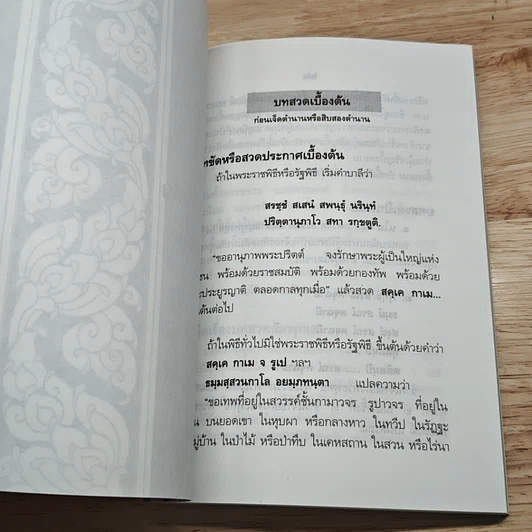 บทสวดเบื้องต้น
ก่อนเจ็ดตำนานหรือสิบสองตำนาน
ขัดหรือสวดประกาศเบื้องต้น
ถ้าในพระราชพิธีหรือรัฐพิธี เริ่มคำบาลีว่า
สรชฺชํ สเสนํ สพนฺธุํ นรินฺทํ
ปริตฺตานุภาโว สทา รกฺขตูติ.
"ขออานุภาพพระปริตต์ จงรักษาพระผู้เป็นใหญ่แห่ง
ชน พร้อมด้วยราชสมบัติ พร้อมด้วยกองทัพ พร้อมด้วย
ประยูรญาติ ตลอดกาลทุกเมื่อ" แล้วสวด สคฺเค กาเม...
ต้นต่อไป
ถ้าในพิธีทั่วไปมิใช่พระราชพิธีหรือรัฐพิธี ขึ้นต้นด้วยคำว่า
สคฺเค กาเม จ รูเป ฯลฯ
ธมฺมสฺสวนกาโล อยมฺภทนฺตา แปลความว่า
"ขอเทพที่อยู่ในสวรรค์ชั้นกามาวจร รูปาวจร ที่อยู่ใน
น บนยอดเขา ในหุบผา หรือกลางหาว ในทวีป ในรัฏฐะ
หมู่บ้าน ในป่าไม้ หรือป่าทึบ ในเคหสถาน ในสวน หรือไร่นา